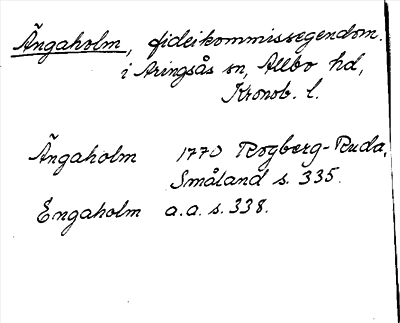 Ängaholm, fideikommissegendom.
i Aringsås sn, Allbo hd,
Kronob. l.
Ängaholm 1770 Rogberg-Ruda,
Småland s. 335.
Engaholm a.a. s. 338.